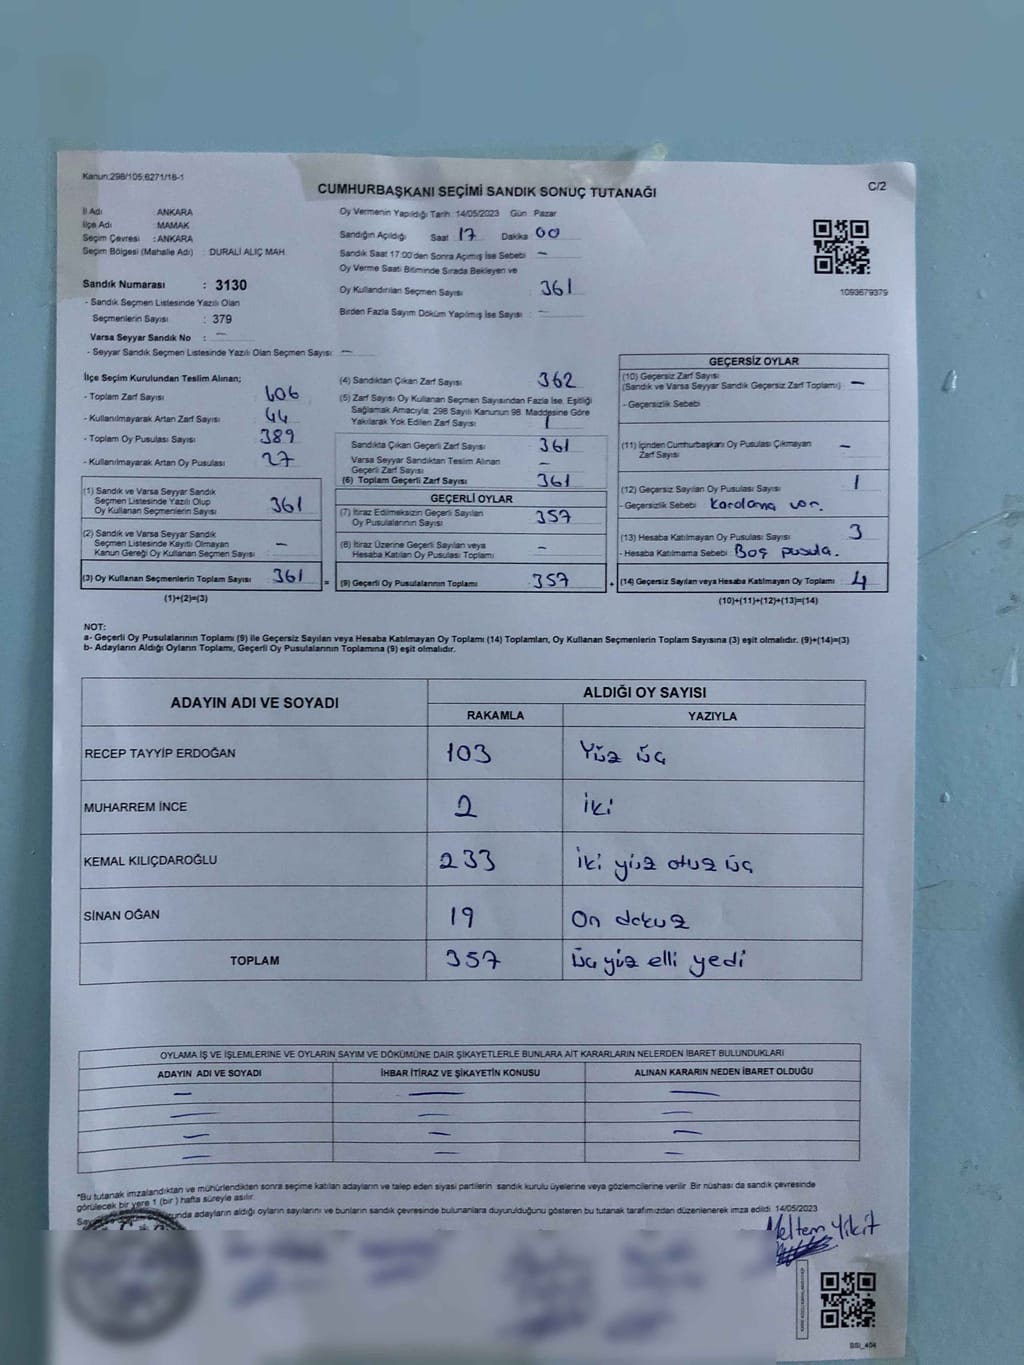 Kanun:298/105;6271/18-1
CUMHURBAŞKANI SEÇİMİ SANDIK SONUÇ TUTANAĞI
C/2
İl Adı : ANKARA
İlçe Adı : MAMAK
Seçim Çevresi : ANKARA
Seçim Bölgesi (Mahalle Adı) : DURALİ ALIÇ MAH.
Sandık Numarası : 3130
- Sandık Seçmen Listesinde Yazılı Olan
Seçmenlerin Sayısı : 379
Varsa Seyyar Sandık No : -
- Seyyar Sandık Seçmen Listesinde Yazılı Olan Seçmen Sayısı : -
Oy Vermenin Yapıldığı Tarih 14/05/2023 Gün : Pazar
Sandığın Açıldığı Saat 17 Dakika 00
Sandık Saat 17:00'den Sonra Açımış İse Sebebi : -
Oy Verme Saati Bitiminde Sırada Bekleyen ve
Oy Kullandırılan Seçmen Sayısı : 361
Birden Fazla Sayım Döküm Yapılmış İse Sayısı : -
1093679379
İlçe Seçim Kurulundan Teslim Alınan;
- Toplam Zarf Sayısı : 406
- Kullanılmayarak Artan Zarf Sayısı : 44
- Toplam Oy Pusulası Sayısı : 389
- Kullanılmayarak Artan Oy Pusulası : 27
(1) Sandık ve Varsa Seyyar Sandık
Seçmen Listesinde Yazılı Olup
Oy Kullanan Seçmenlerin Sayısı : 361
(2) Sandık ve Varsa Seyyar Sandık
Seçmen Listesinde Kayıtlı Olmayan
Kanun Gereği Oy Kullanan Seçmen Sayısı : -
(3) Oy Kullanan Seçmenlerin Toplam Sayısı : 361 =
(1)+(2)=(3)
(4) Sandıktan Çıkan Zarf Sayısı : 362
(5) Zarf Sayısı Oy Kullanan Seçmen Sayısından Fazla İse, Eşitliği
Sağlamak Amacıyla; 298 Sayılı Kanunun 98. Maddesine Göre
Yakılarak Yok Edilen Zarf Sayısı : 1
Sandıkta Çıkan Geçerli Zarf Sayısı : 361
Varsa Seyyar Sandıktan Teslim Alınan
Geçerli Zarf Sayısı : -
(6) Toplam Geçerli Zarf Sayısı : 361
GEÇERLİ OYLAR
(7) İtiraz Edilmeksizin Geçerli Sayılan
Oy Pusulalarının Sayısı : 357
(8) İtiraz Üzerine Geçerli Sayılan veya
Hesaba Katılan Oy Pusulası Toplamı : -
(9) Geçerli Oy Pusulalarının Toplamı : 357 +
GEÇERSİZ OYLAR
(10) Geçersiz Zarf Sayısı
(Sandık ve Varsa Seyyar Sandık Geçersiz Zarf Toplamı) : -
- Geçersizlik Sebebi
(11) İçinden Cumhurbaşkanı Oy Pusulası Çıkmayan
Zarf Sayısı : -
(12) Geçersiz Sayılan Oy Pusulası Sayısı : 1
- Geçersizlik Sebebi Karalama var.
(13) Hesaba Katılmayan Oy Pusulası Sayısı : 3
- Hesaba Katılmama Sebebi Boş pusula.
(14) Geçersiz Sayılan veya Hesaba Katılmayan Oy Toplamı : 4
(10)+(11)+(12)+(13)=(14)
NOT:
a- Geçerli Oy Pusulalarının Toplamı (9) ile Geçersiz Sayılan veya Hesaba Katılmayan Oy Toplamı (14) Toplamları, Oy Kullanan Seçmenlerin Toplam Sayısına (3) eşit olmalıdır. (9)+(14)=(3)
b- Adayların Aldığı Oyların Toplamı, Geçerli Oy Pusulalarının Toplamına (9) eşit olmalıdır.
ADAYIN ADI VE SOYADI ALDIĞI OY SAYISI
RAKAMLA YAZIYLA
RECEP TAYYİP ERDOĞAN 103 Yüz üç
MUHARREM İNCE 2 iki
KEMAL KILIÇDAROĞLU 233 iki yüz otuz üç
SİNAN OĞAN 19 On dokuz
TOPLAM 357 üç yüz elli yedi
OYLAMA İŞ VE İŞLEMLERİNE VE OYLARIN SAYIM VE DÖKÜMÜNE DAİR ŞİKAYETLERLE BUNLARA AİT KARARLARIN NELERDEN İBARET BULUNDUKLARI
ADAYIN ADI VE SOYADI İHBAR İTİRAZ VE ŞİKAYETİN KONUSU ALINAN KARARIN NEDEN İBARET OLDUĞU
- - -
- - -
- - -
- - -
*Bu tutanak imzalandıktan ve mühürlendikten sonra seçime katılan adayların ve talep eden siyasi partilerin sandık kurulu üyelerine veya gözlemcilerine verilir. Bir nüshası da sandık çevresinde
görülecek bir yere 1 (bir) hafta süreyle asılır.
adayların aldığı oyların sayılarını ve bunların sandık çevresinde bulunanlara duyurulduğunu gösteren bu tutanak tarafımızdan düzenlenerek imza edildi. 14/05/2023
Meltem Yikit
BSI_404